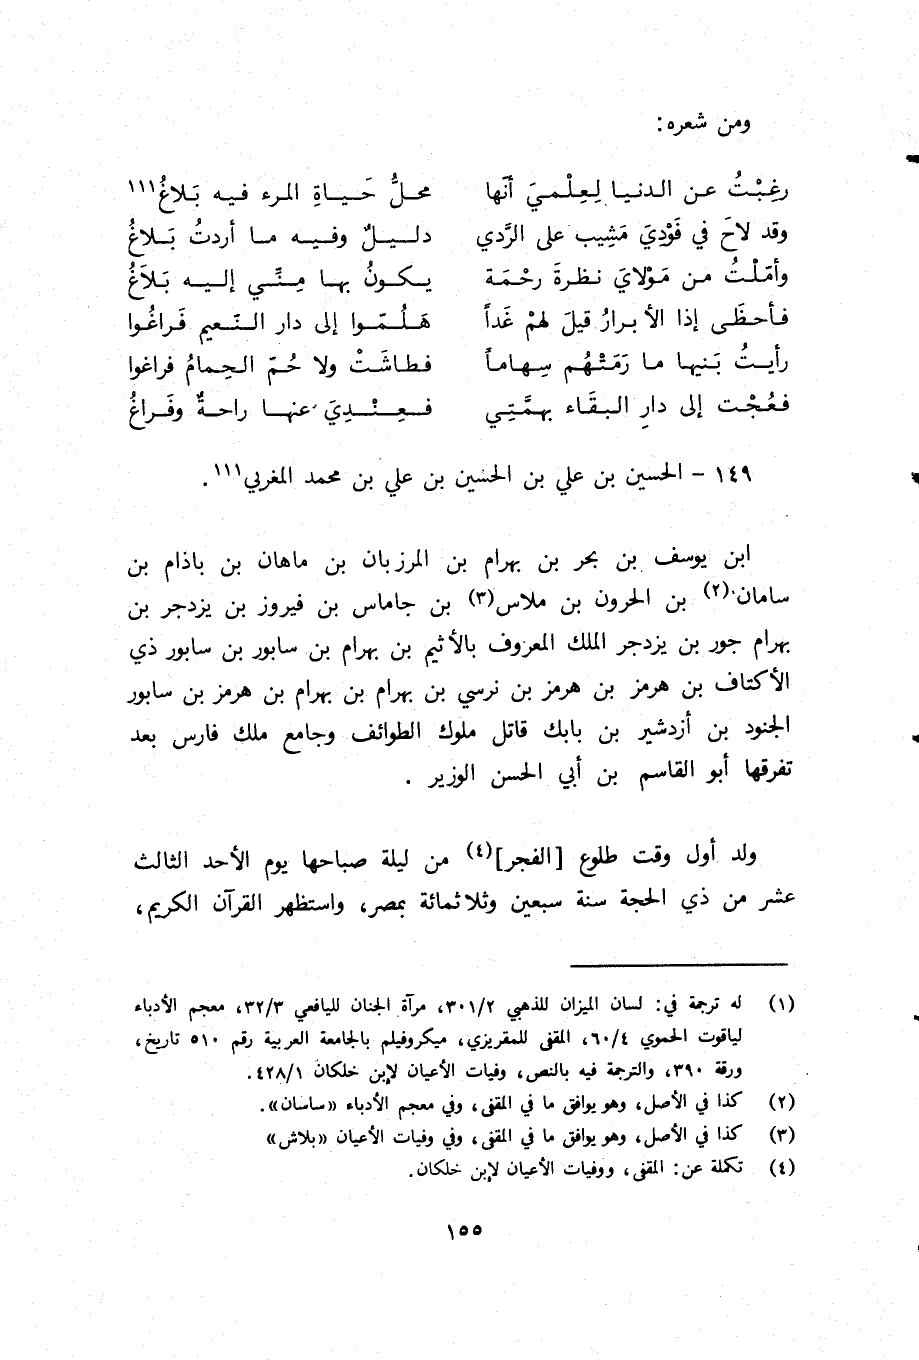 ومن شعره:
رغِبْتُ عن الدنيا لِعِلْميَ أنّها محلُّ حَياةِ المرء فيه بَلاغُ(١)
وقد لاحَ في فَوْديَ مَشيب على الرَّدي دليلٌ وفيه ما أردتُ بَلاغُ
وأمّلْتُ من مَوْلايَ نظرةَ رحْمَة يكونُ بها مِنِّي إليه بَلاَغُ
فأحظَى إذا الأبرارُ قيلَ لهمْ غَداً هَلُمّوا إلى دار النَّعيم فَراغُوا
رأيتُ بَنيها ما رَمَتْهُم سِهاماً فطاشَتْ ولا حُمّ الحِمامُ فراغوا
فعُجْت إلى دارِ البقَاء بهمَّتِي فعِنْدِيَ عنها راحةٌ وفَراغُ
١٤٩ - الحسين بن علي بن الحسين بن علي بن محمد المغربي(١).
ابن يوسف بن بحر بن بهرام بن المرزبان بن ماهان بن باذام بن
سامان(٢) بن الحرون بن ملاس(٣) بن جاماس بن فيروز بن يزدجر بن
بهرام جور بن يزدجر الملك المعروف بالأثيم بن بهرام بن سابور بن سابور ذي
الأكتاف بن هرمز بن هرمز بن نرسي بن بهرام بن بهرام بن هرمز بن سابور
الجنود بن أزدشير بن بابك قاتل ملوك الطوائف وجامع ملك فارس بعد
تفرقها أبو القاسم بن أبي الحسن الوزير .
ولد أول وقت طلوع [الفجر](٤) من ليلة صباحها يوم الأحد الثالث
عشر من ذي الحجة سنة سبعين وثلاثمائة بمصر، واستظهر القرآن الكريم،
(١) له ترجمة في: لسان الميزان للذهبي ٣٠١/٢، مرآة الجنان لليافعي ٣٢/٣، معجم الأدباء
لياقوت الحموي ٦٠/٤، المقفى للمقريزي، ميكروفيلم بالجامعة العربية رقم ٥١٠ تاريخ،
ورقة ٣٩٠، والترجمة فيه بالنص، وفيات الأعيان لإبن خلكان ٤٢٨/١.
(٢) كذا في الأصل، وهو يوافق ما في المقفى، وفي معجم الأدباء «ساسان».
(٣) كذا في الأصل، وهو يوافق ما في المقفى، وفي وفيات الأعيان «بلاش»
(٤) تكملة عن: المقفى، ووفيات الأعيان لإبن خلكان.
١٥٥